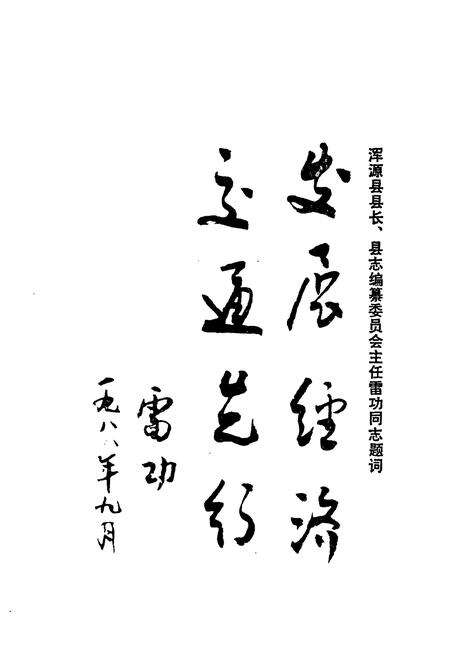 浑源县县长、县志编纂委员会主任雷功同志题词
发展经济
交通先行
雷功
一九八八年九月